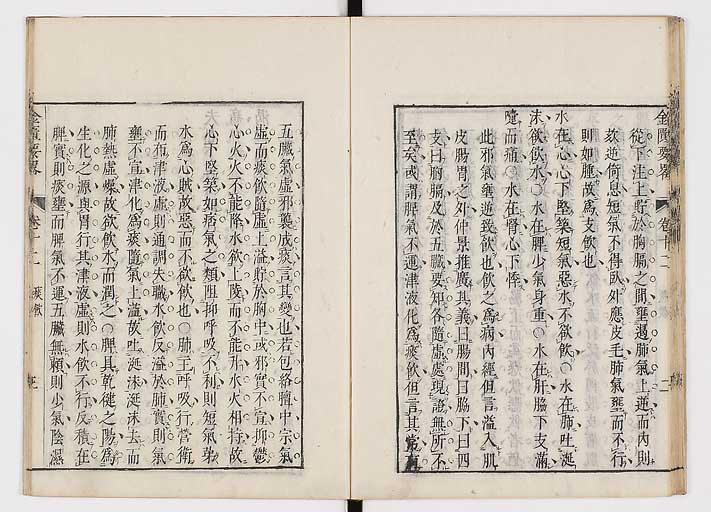 金匱要略 卷十二 痰飲 二
從下注上貯於胸膈之間壅遏肺氣上逆而內則
欬逆倚息短氣不得臥外應皮毛肺氣壅而不行
則如腫故爲支飲也
水在心心下堅築短氣惡水不欲飲○水在肺吐涎
沫欲飲水○水在脾少氣身重○水在肝脇下支滿
嚏而痛○水在腎心下悸
此邪氣壅遏致飲也飲之爲病內經但言溢入肌
皮腸胃之外仲景推廣其義曰腸間曰脇下曰四
支曰胸膈及於五臟要知各隨虛處現證無所不
至矣或謂脾氣不運津液化爲痰飲但言其常耳
五臟氣虛邪襲成痰言其變也若包絡膻中宗氣
虛而痰飲隨虛上溢貯於胸中或邪實不宣抑鬱
心火火不能降水欲上陵而不能升水火相持故
心下堅築如痞氣之類阻抑呼吸不利則短氣第
水爲心賊故惡而不欲飲也○肺主呼吸行營衛
而布津液虛則通調失職水飲反溢於肺實則氣
壅不宣津化爲痰隨氣上溢故吐涎沫涎沫去而
肺熱虛燥故欲飲水而潤之○脾具乾健之陽爲
生化之源與胃行其津液虛則水飲不行反積在
脾實則痰壅而脾氣不運五臟無賴則少氣陰濕
金匱要略 卷十二 痰飲